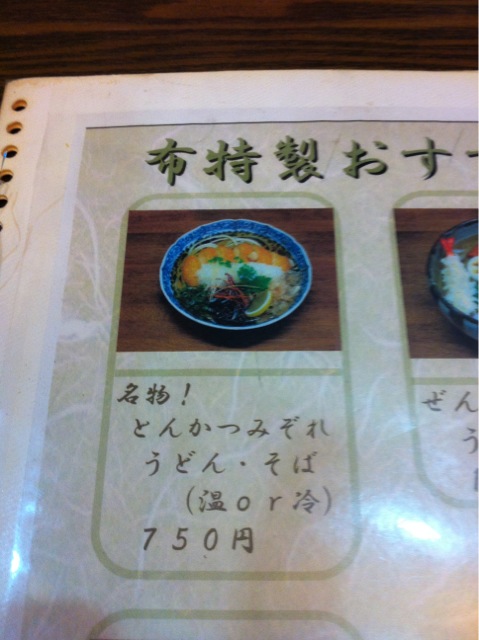 布特製おす
名物!
とんかつみぞれ
うどん・そば
(温or冷)
750円
ぜん
う